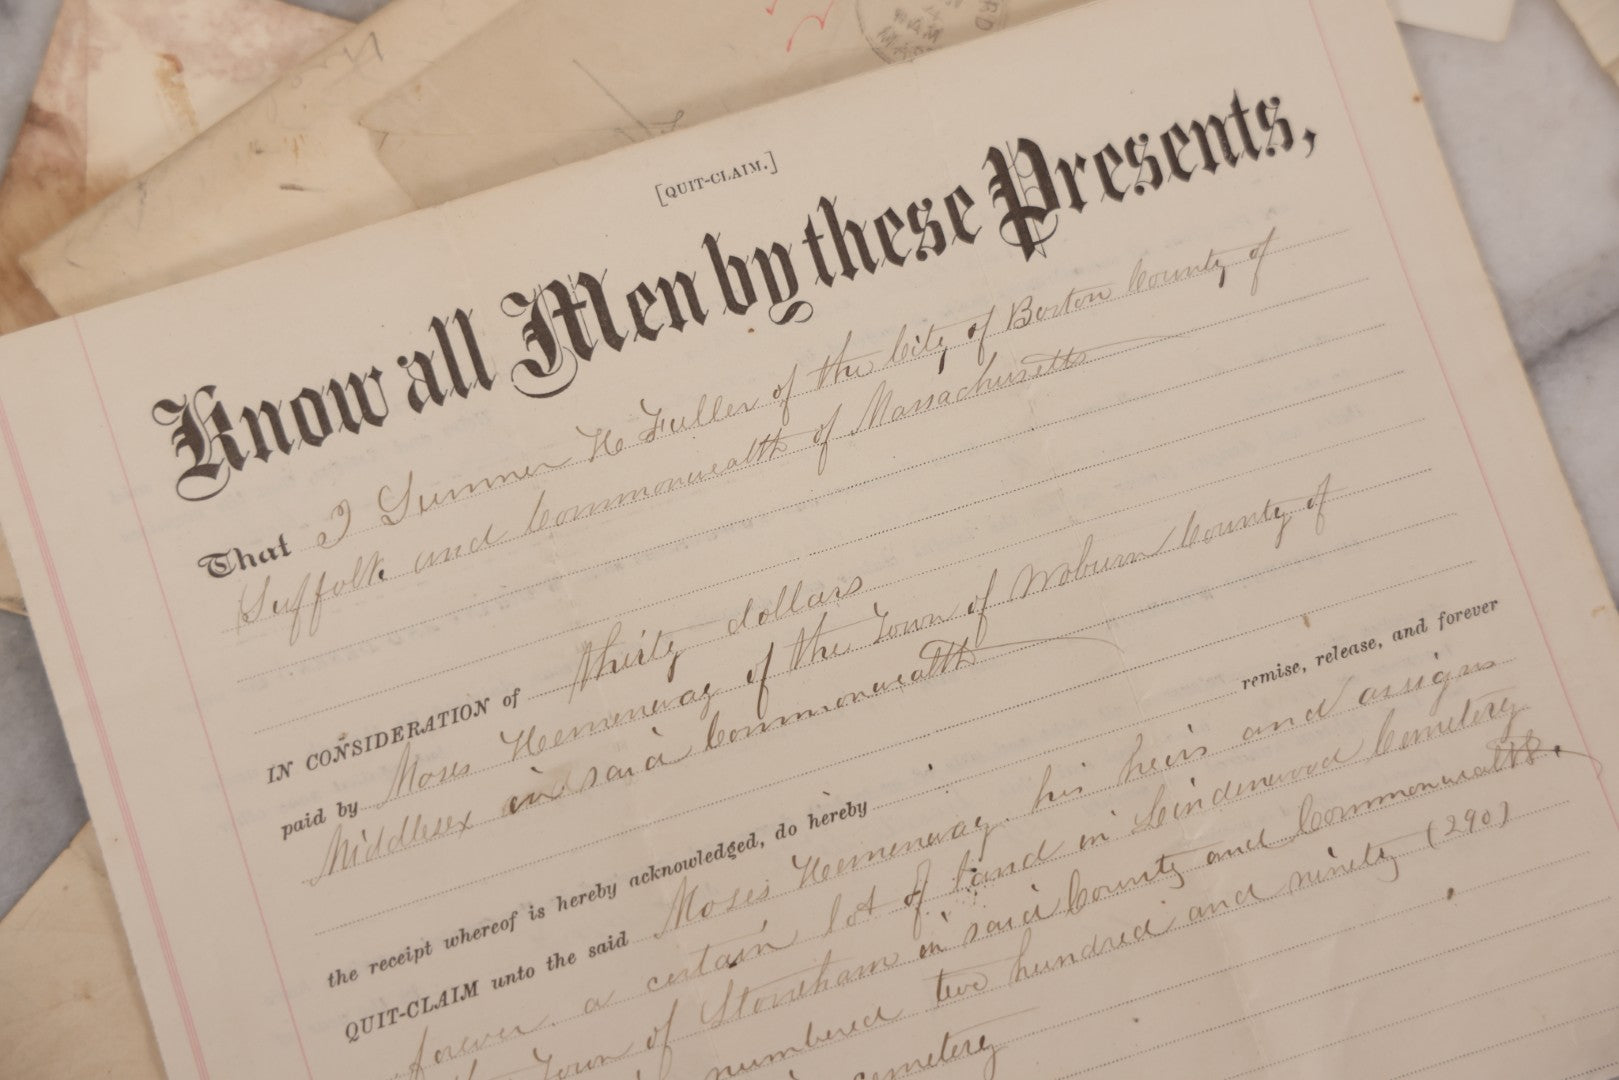 [QUIT-CLAIM.]
Know all Men by these Presents,
That I Sumner H Fuller of the City of Boston County of
Suffolk and Commonwealth of Massachusetts
IN CONSIDERATION of thirty dollars
paid by Moses Hemenway of the Town of Woburn County of
Middlesex in said Commonwealth
the receipt whereof is hereby acknowledged, do hereby remise, release, and forever
QUIT-CLAIM unto the said Moses Hemenway his heirs and assigns
forever a certain lot of land in Lindenwood Cemetery
Town of Stoneham in said County and Commonwealth.
numbered two hundred and ninety (290)
cemetery